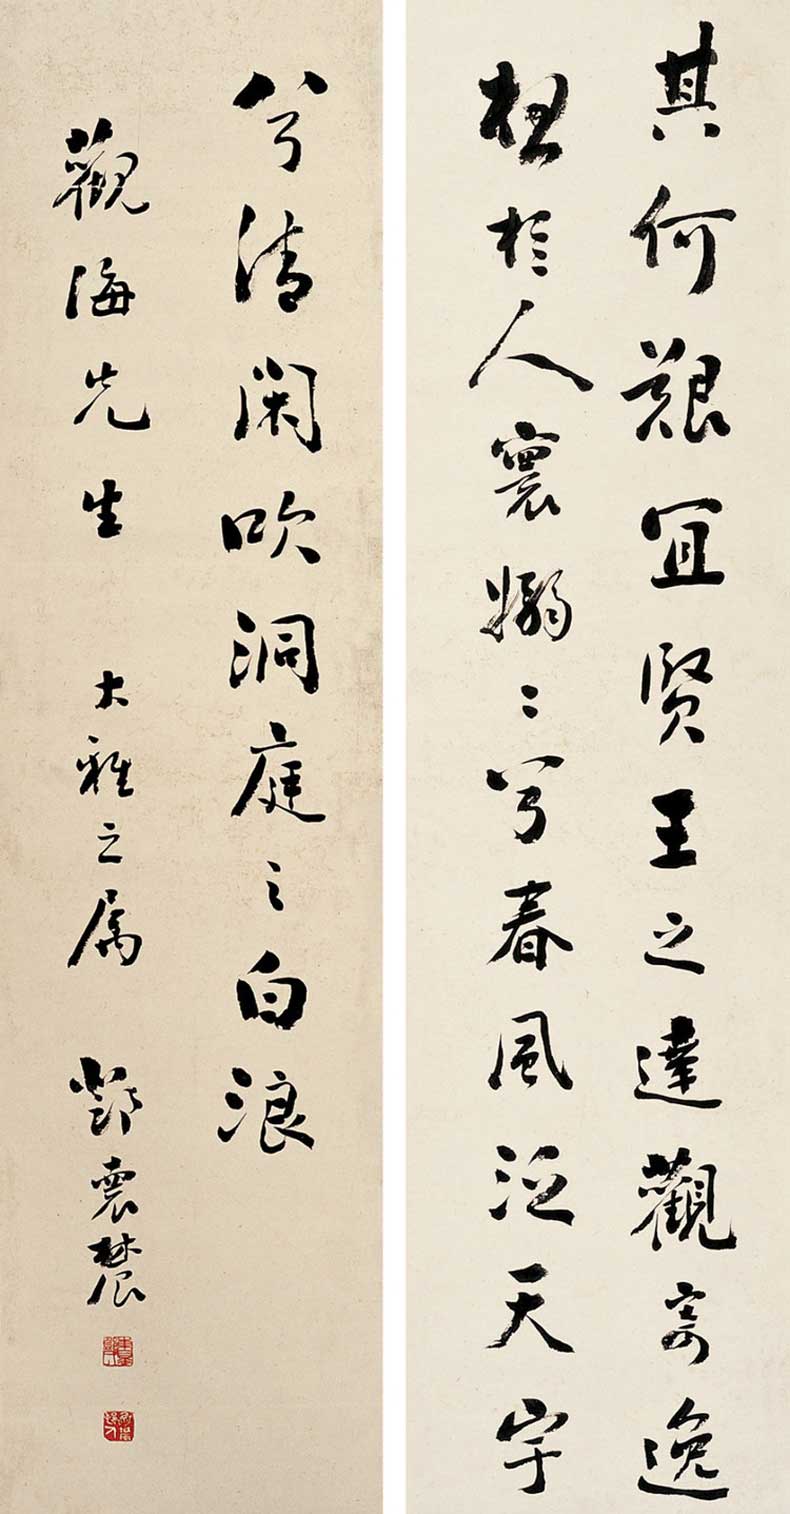 其何艱宜賢王之達觀寄逸
想於人寰嫋〻兮春風泛天宇
兮清閑吹洞庭之白浪
觀海先生 大雅之属